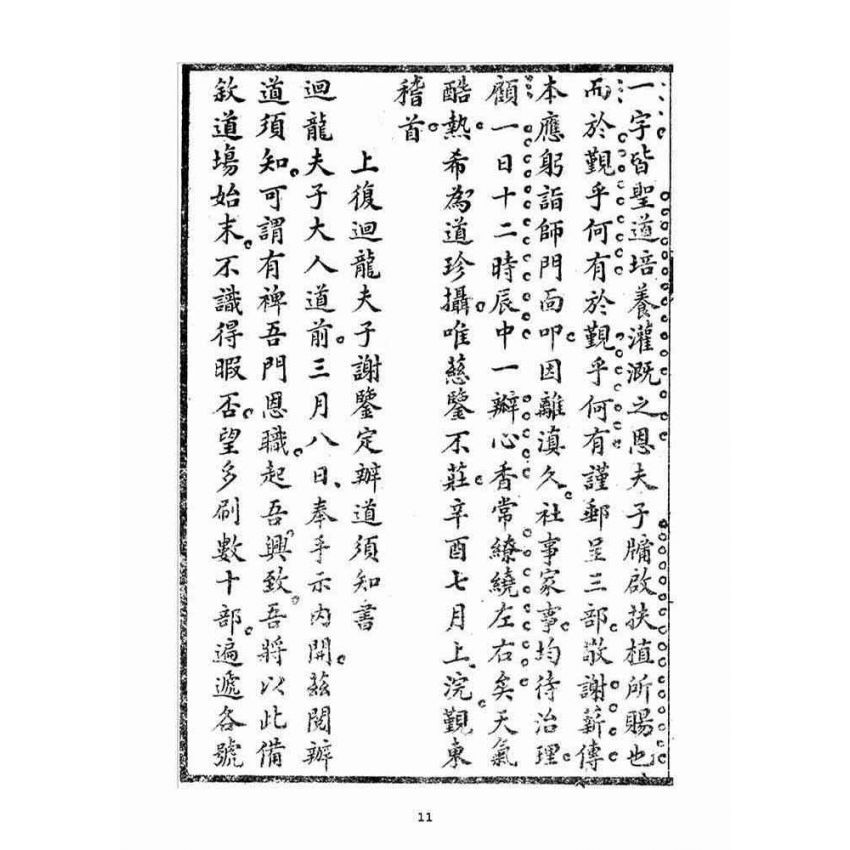 一字皆聖道培養灌溉之恩夫子牖啟扶植所賜也
而於覲乎何有於覲乎何有謹郵呈三部敬謝薪傳
本應躬詣師門面叩因離滇久社事家事均待治理
顧一日十二時辰中一瓣心香常繚繞左右矣天氣
酷熱希為道珍攝唯慈鑒不莊辛酉七月上浣覲東
稽首
上復迴龍夫子謝鑒定辦道須知書
迴龍夫子大人道前三月八日奉手示內開茲閱辦
道須知可謂有裨吾門恩職起吾興致吾將以此備
敘道塲始末不識得暇否望多刷數十部遍遞各號
11